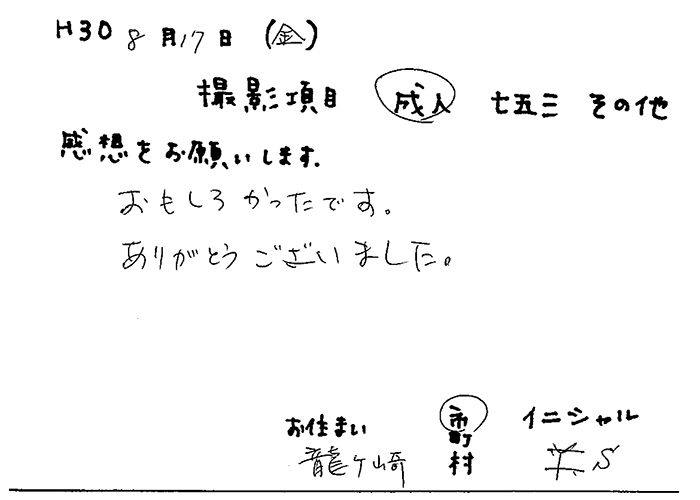 H30 8月17日 (金)
撮影項目 成人 七五三 その他
感想をお願いします.
おもしろかったです。
ありがとうございました。
お住まい 市町村 イニシャル
龍ケ崎 S